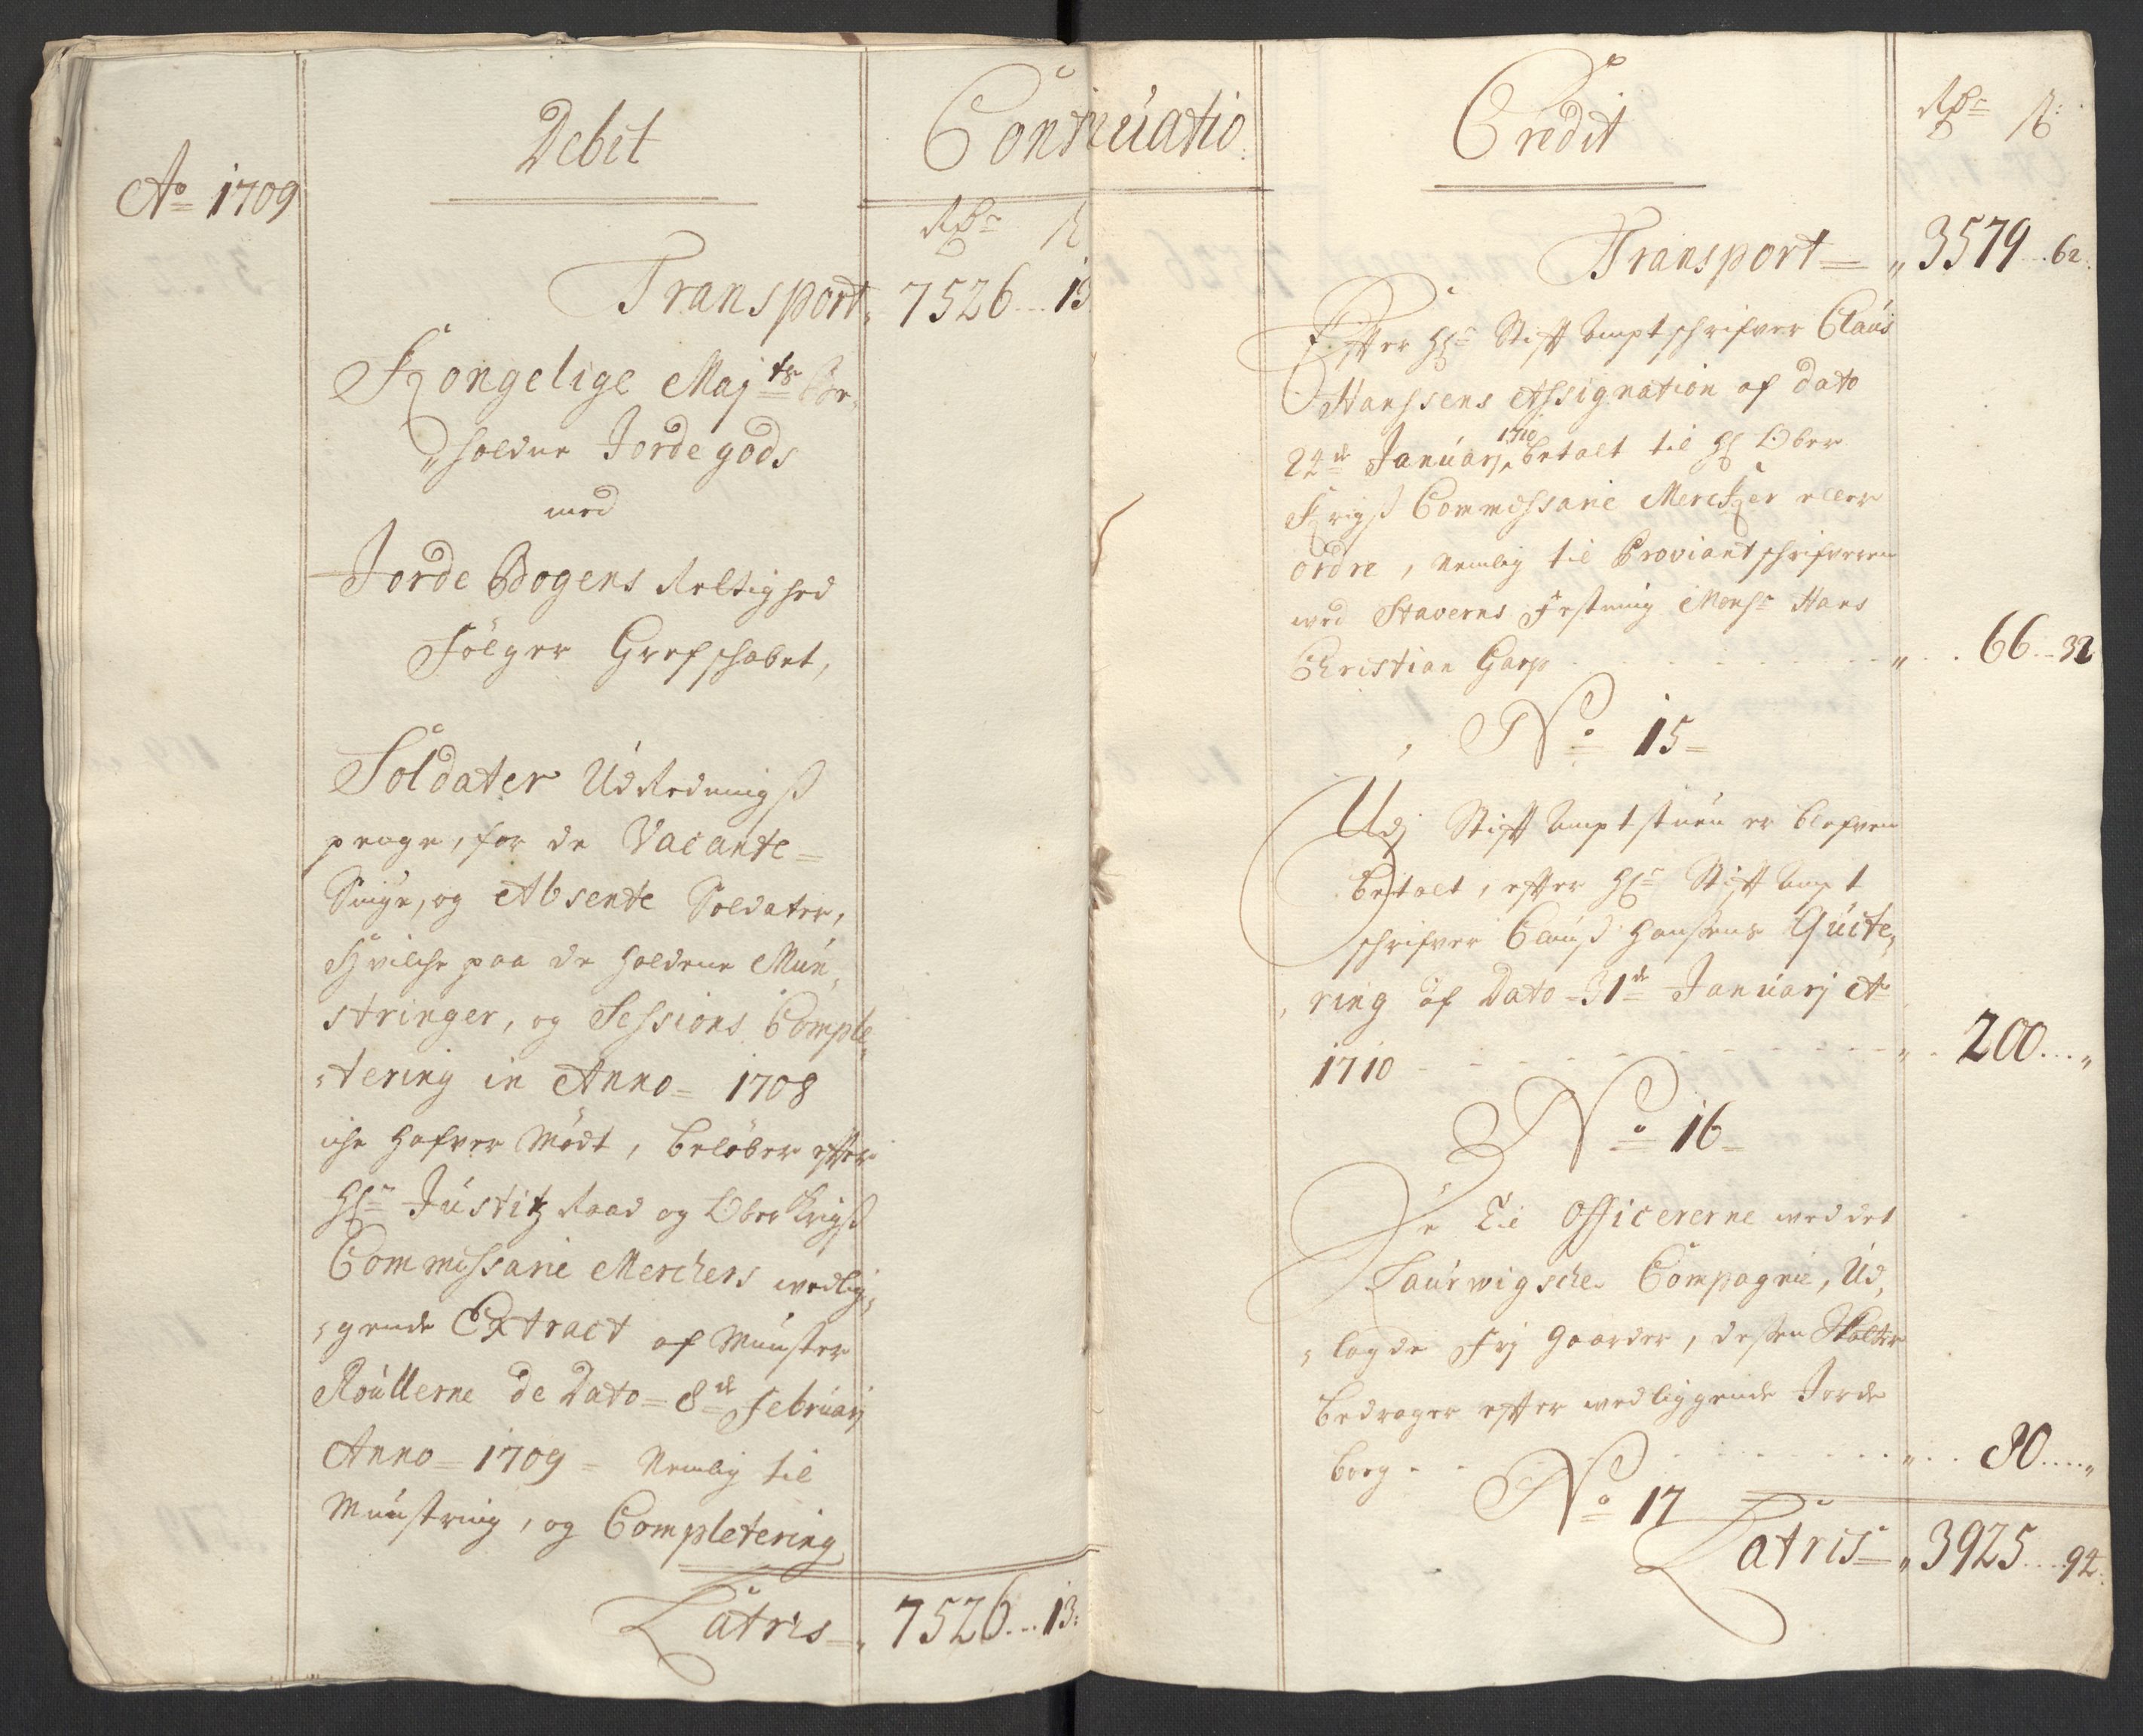 Ao 1709
Debet
Continuatio
Rdr ß
Transport 7526 13
Kongelige Majts Be-
holdne Jordegods
med
Jorde Bogens Rettighed
Følger Grefschabet,
Soldater UdRednings
penge, for de Vacante
Siuge, og Absente Soldater,
Hvilche paa de holdene Mün-
stringer, og Sessions Comple-
tering in Anno 1708
iche hafver Mødt, beløber efter
Hr Justitz Raad og Ober Krigs
Commissarie Merchers vedlig-
gende Extract af Münster
Roullerne de Dato 8de Februarj
Anno 1709 Nemlig til
Münstring, og Completering
Latris 7526 13
Credit
Rdr ß
Transport 3579 62
Efter Hr Stiftamptschrifver Claus
Hanssens Assignation af dato
24de Januarj 1710 betalt til Hr Ober
Krigs Commissarie Mercker eller
ordre, Nemlig til Proviantschrifveren
ved Staverns Festning Monsr Hans
Christian Garp 66 32
No 15
Udj Stiftamptstuen er blefven
betalt, efter Hr Stiftampt
schrifver Claus Hansens Quite-
ring af Dato 31de Januarj Ao
1710 200
No 16
De Til Officererne ved det
Laurwigsche Compagnie, Ud-
lagde Frj Gaarder, dessen Skatter
bedrager efter vedliggende Jorde
bog 80
No 17
Latris 3925 94